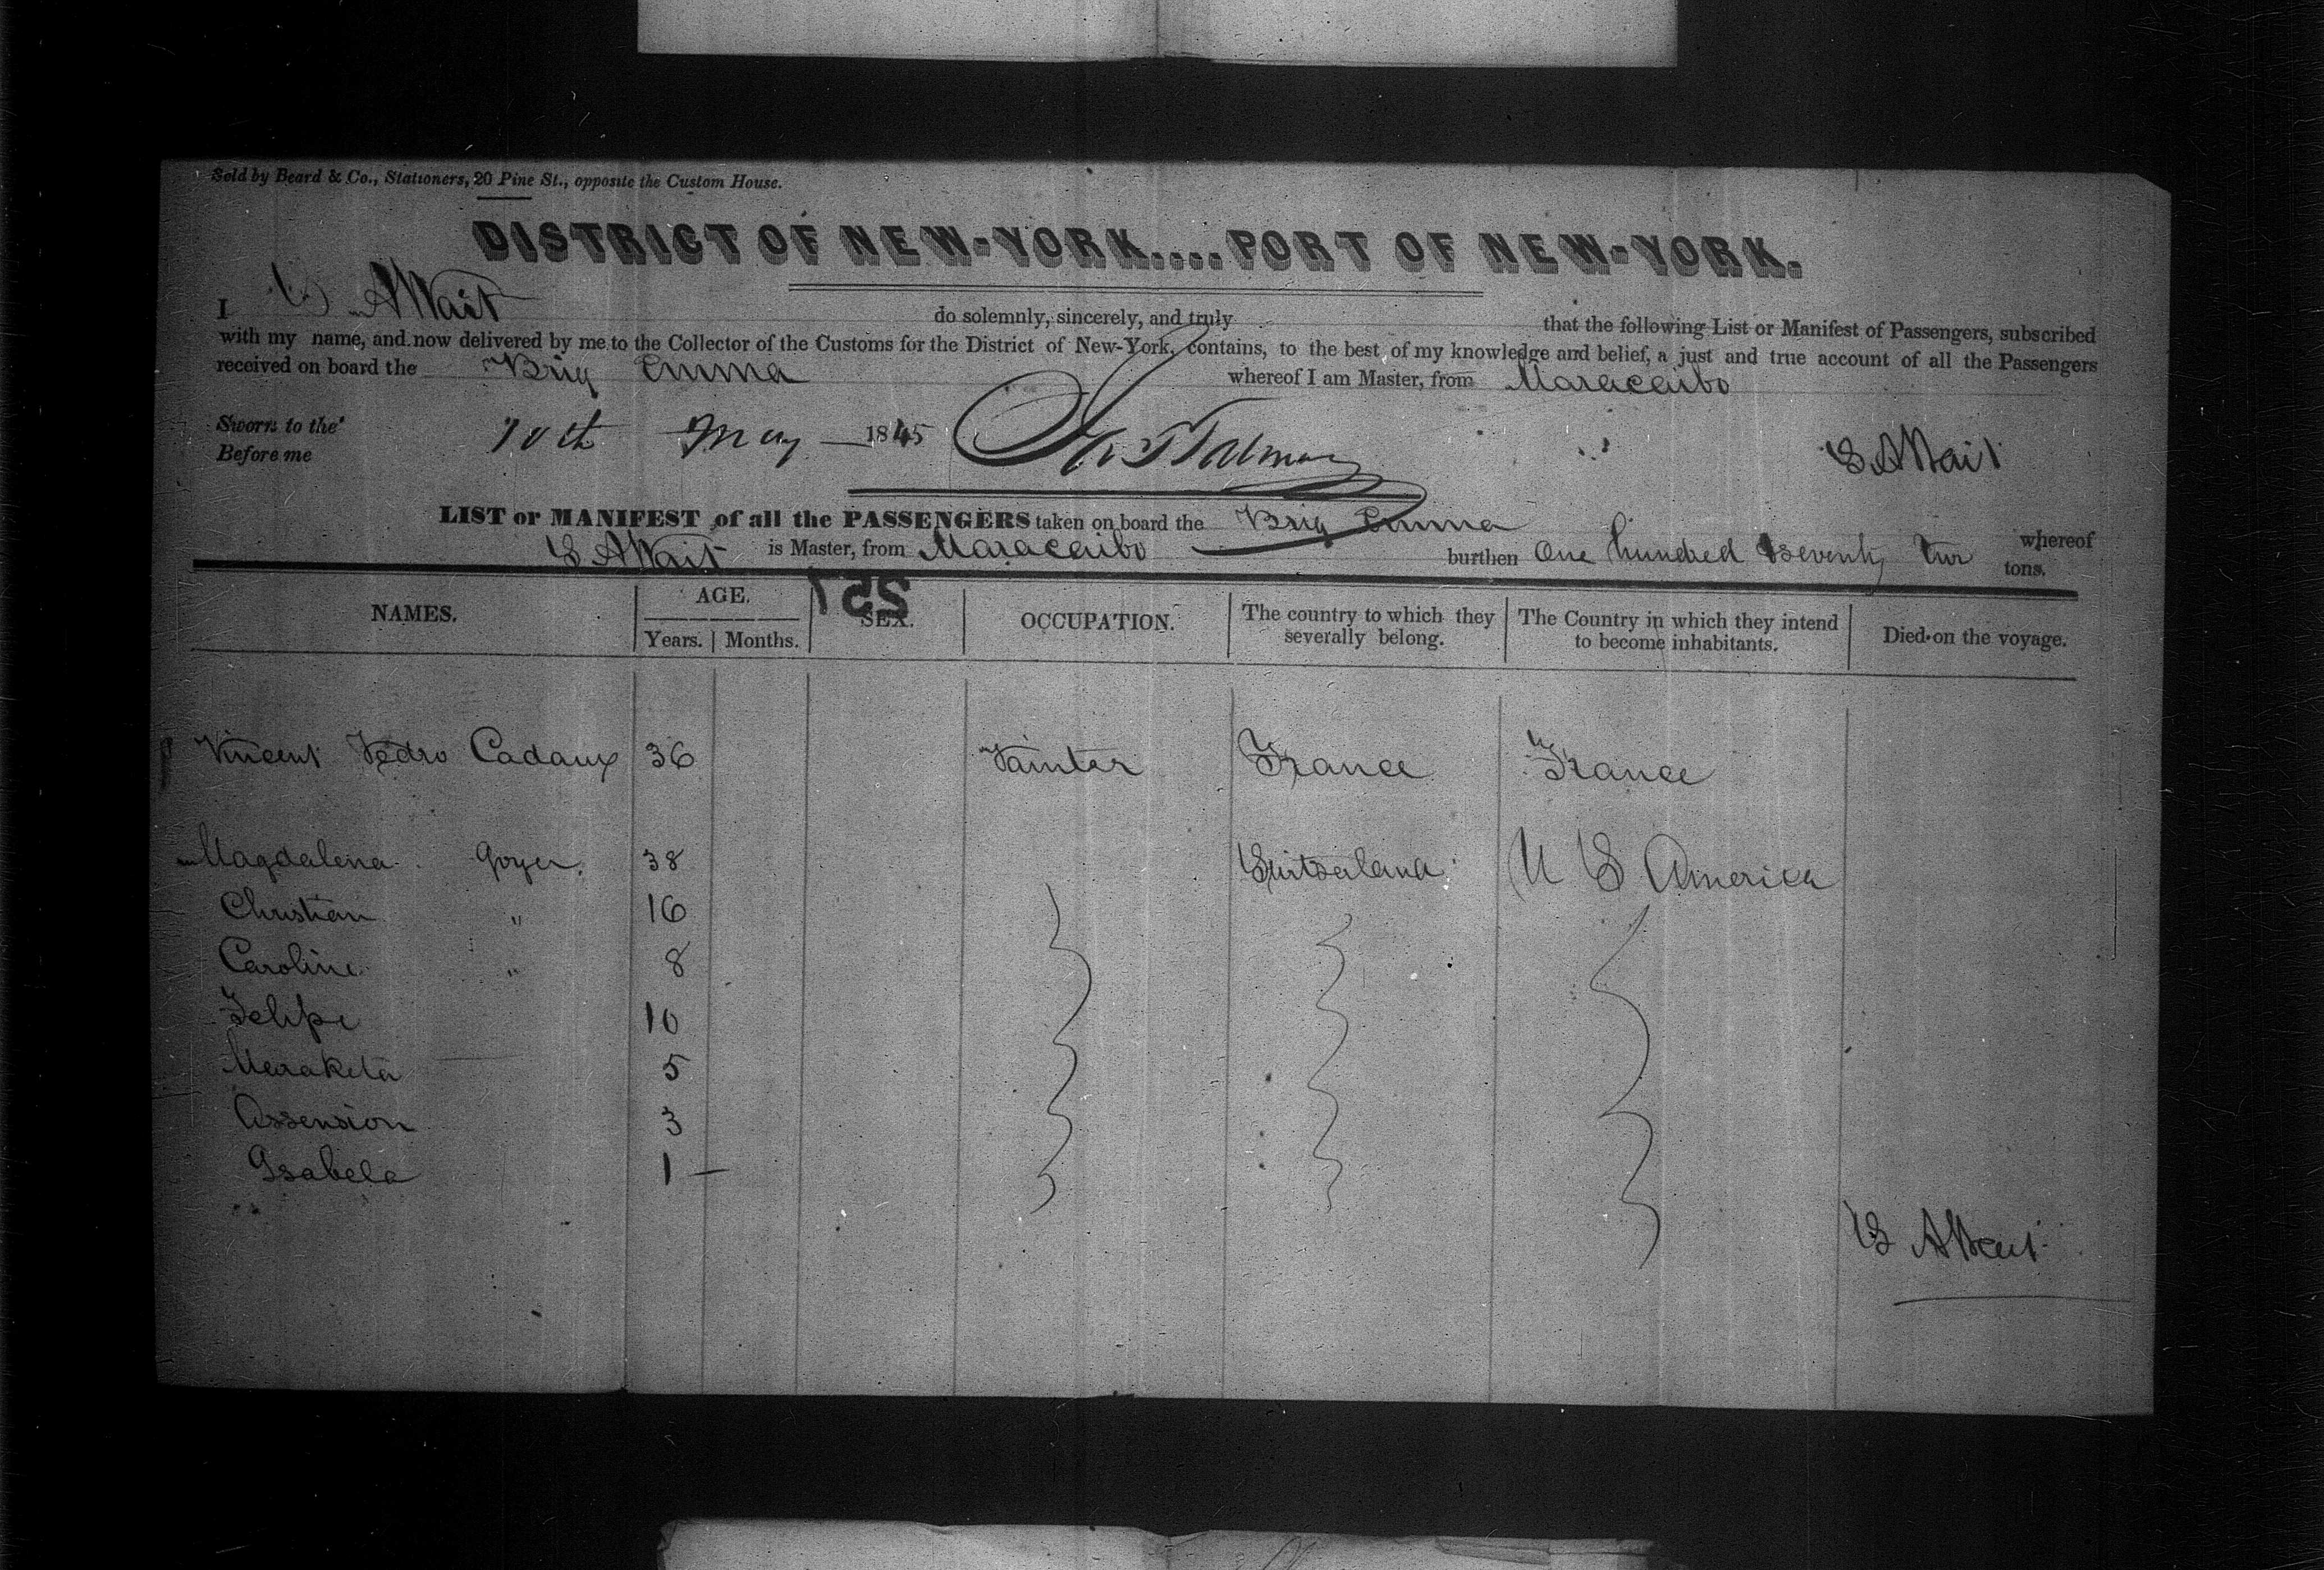 Sold by Beard & Co., Stationers, 20 Pine St., opposite the Custom House.
DISTRICT OF NEW-YORK....PORT OF NEW-YORK.
I S A Wait do solemnly, sincerely, and truly that the following List or Manifest of Passengers, subscribed
with my name, and now delivered by me to the Collector of the Customs for the District of New-York, contains, to the best of my knowledge and belief, a just and true account of all the Passengers
received on board the Brig Emma whereof I am Master, from Maracaibo
Sworn to the 10th May 1845
Before me
S A Wait
LIST or MANIFEST of all the PASSENGERS taken on board the Brig Emma whereof
S A Wait is Master, from Maracaibo burthen One hundred & seventy two tons.
251
NAMES. AGE. SEX. OCCUPATION. The country to which they severally belong. The Country in which they intend to become inhabitants. Died on the voyage.
Years. Months.
Vincent Pedro Cadaux 36 Painter France France
Magdalena Goyer 38 Switserland U S America
Christian " 16
Caroline " 8
Felipe 10
Meraketa 5
Assension 3
Isabela 1 —
S A Wait